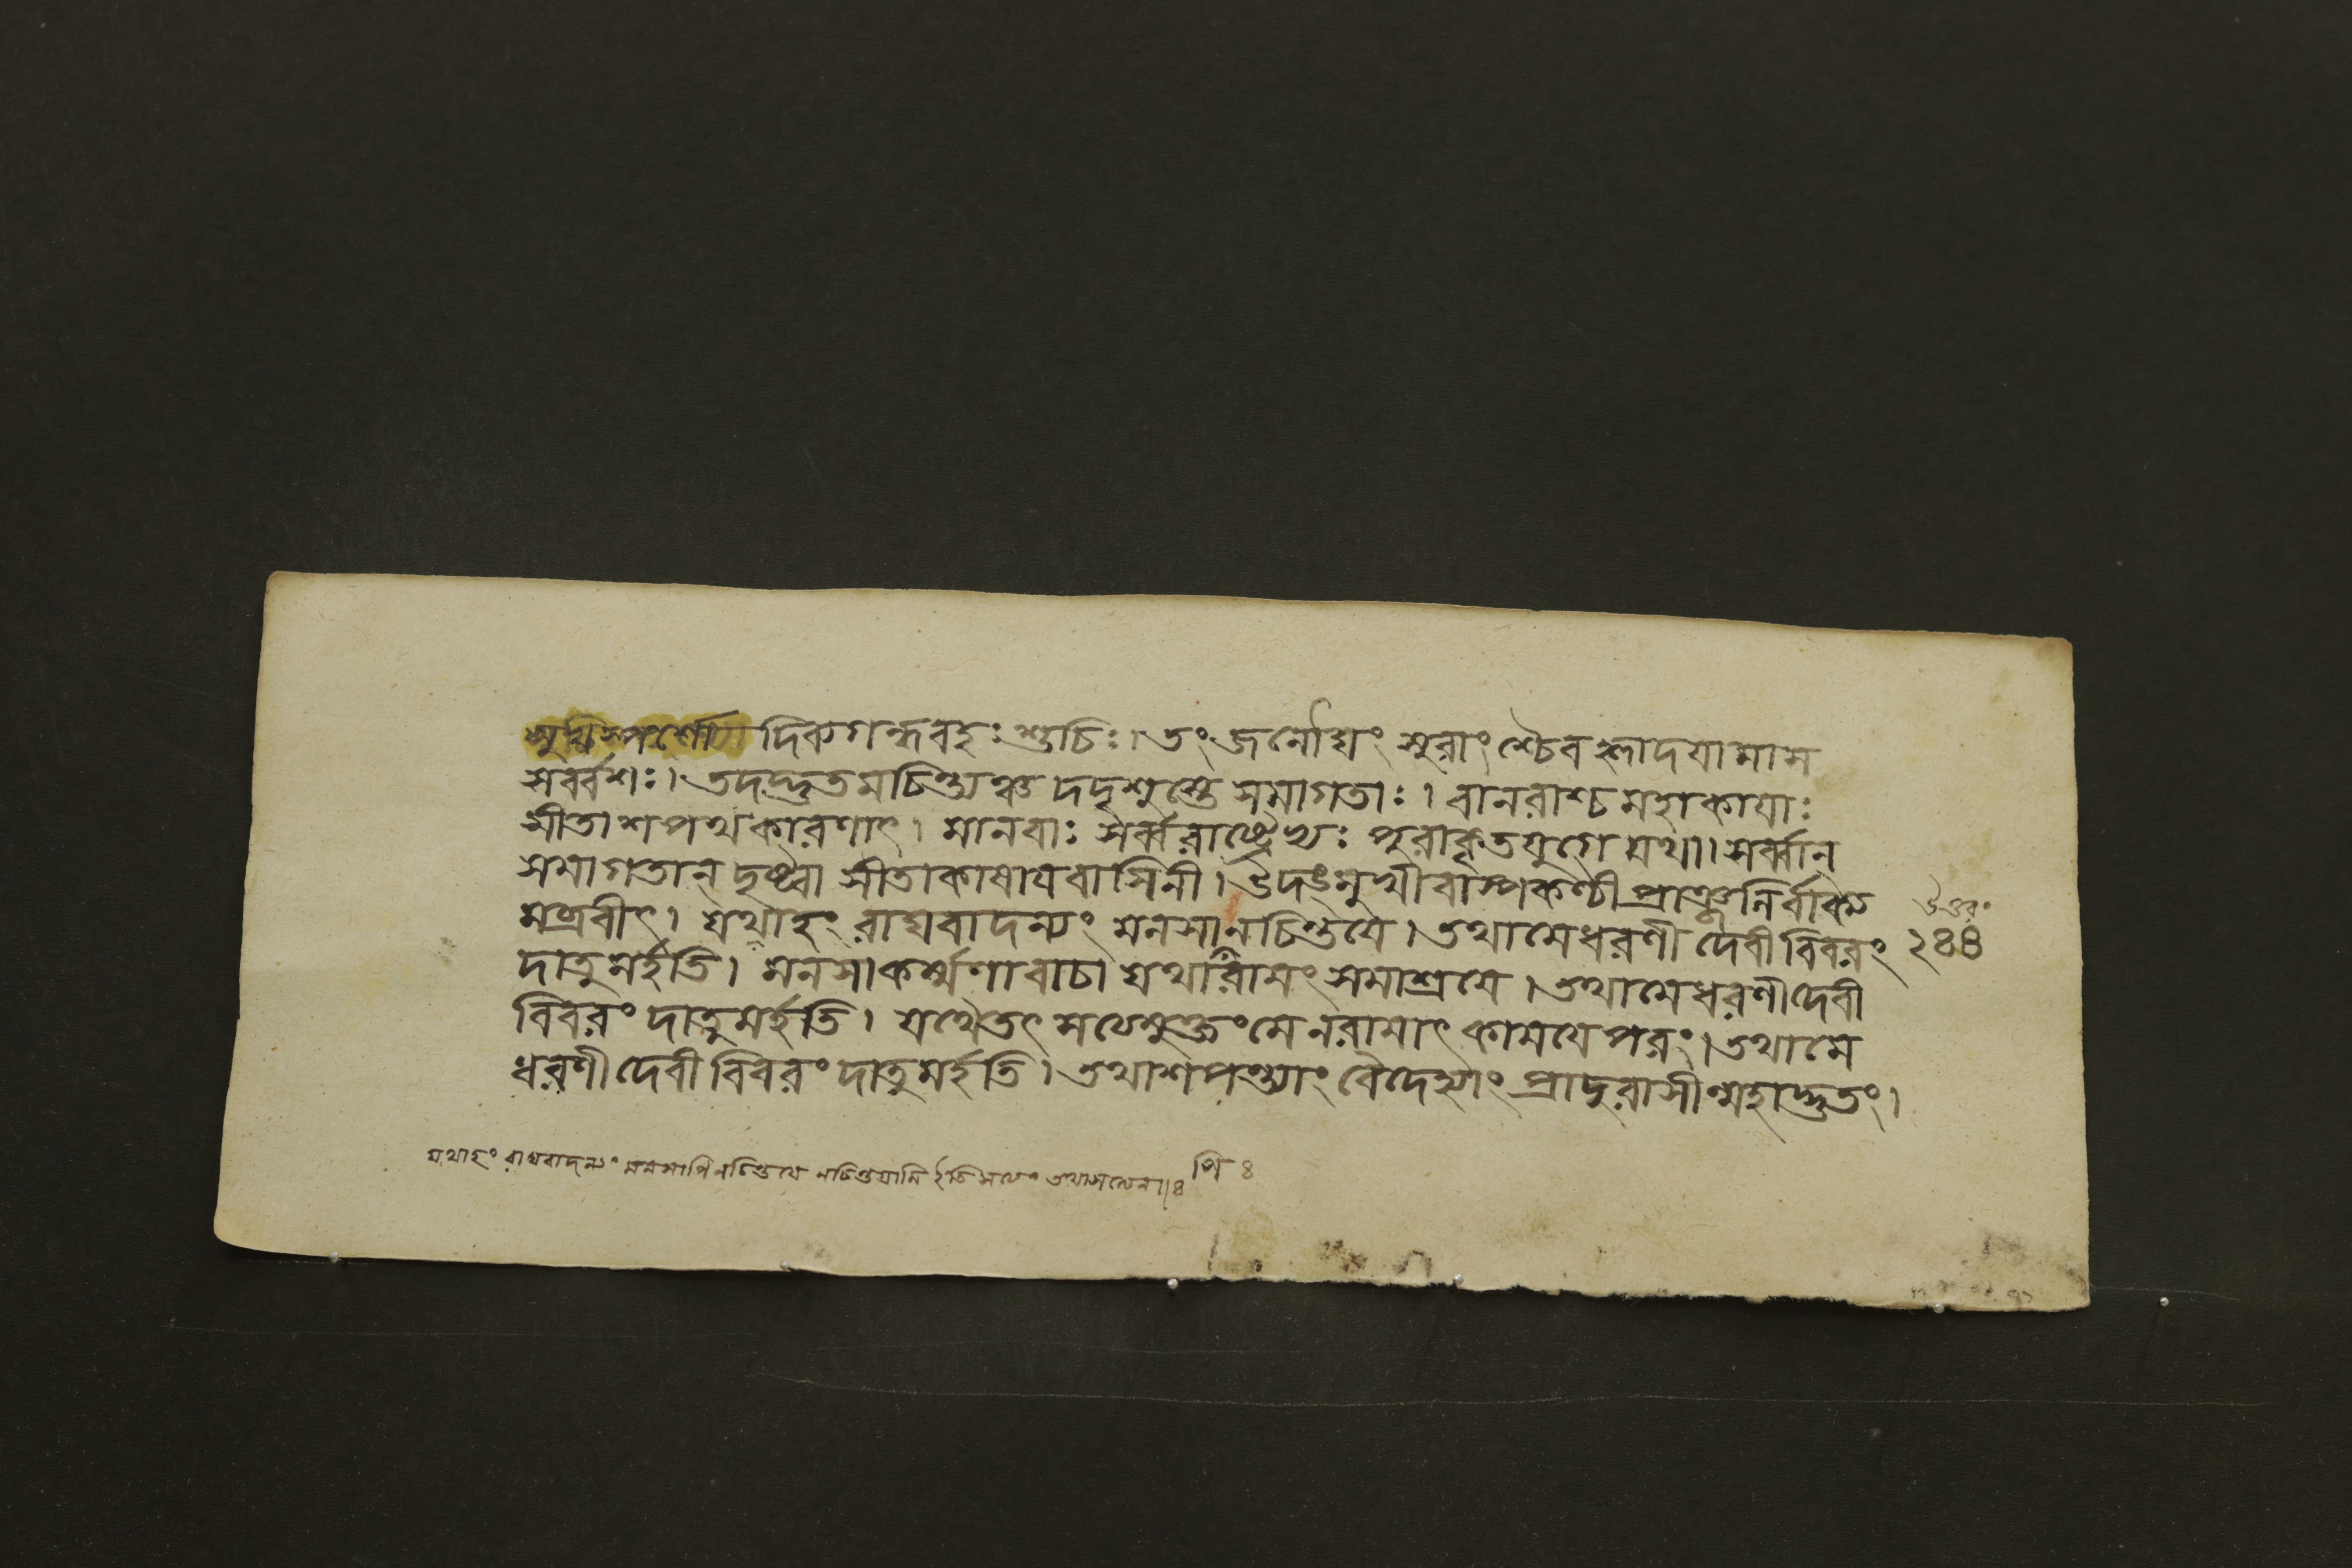 সুখস্পর্শো দিব্যগন্ধবহঃ শুচিঃ। তং জনৌঘং সুরাংশ্চৈব হ্লাদযামাস
সর্ব্বশঃ। তদদ্ভুতমচিন্ত্যঞ্চ দদৃশুস্তে সমাগতাঃ। বানরাশ্চ মহাকাযাঃ
সীতাশপথকারণাৎ। মানবাঃ সর্ব্বরাষ্ট্রেভ্যঃ পুরাকৃতযুগে যথা। সর্ব্বান্
সমাগতান্ দৃষ্ট্বা সীতাকাষাযবাসিনী। উদঙ্মুখীবাস্পকণ্ঠী প্রাঞ্জলির্বাক্য
মব্রবীৎ। যথাহং রাঘবাদন্যং মনসানচিন্তযে। তথামেধরণী দেবী বিবরং
উত্তরং
২৪৪
দাতুমর্হতি। মনসাকর্ম্মণাবাচা যথারামং সমাশ্রযে। তথামেধরণীদেবী
বিবরং দাতুমর্হতি। যথৈতৎ সত্যমুক্তংমেনরামাৎ কামযেপরং। তথামে
ধরণীদেবী বিবরং দাতুমর্হতি। তথাশপন্ত্যাং বৈদেহ্যাং প্রাদুরাসীন্মহাদ্ভুতং।
যথাহং রাঘবাদন্যং মনসাপিনচিন্তযে নচিন্তযামি ইতি সত্যং তথাসত্যেন॥৪ পি ৪